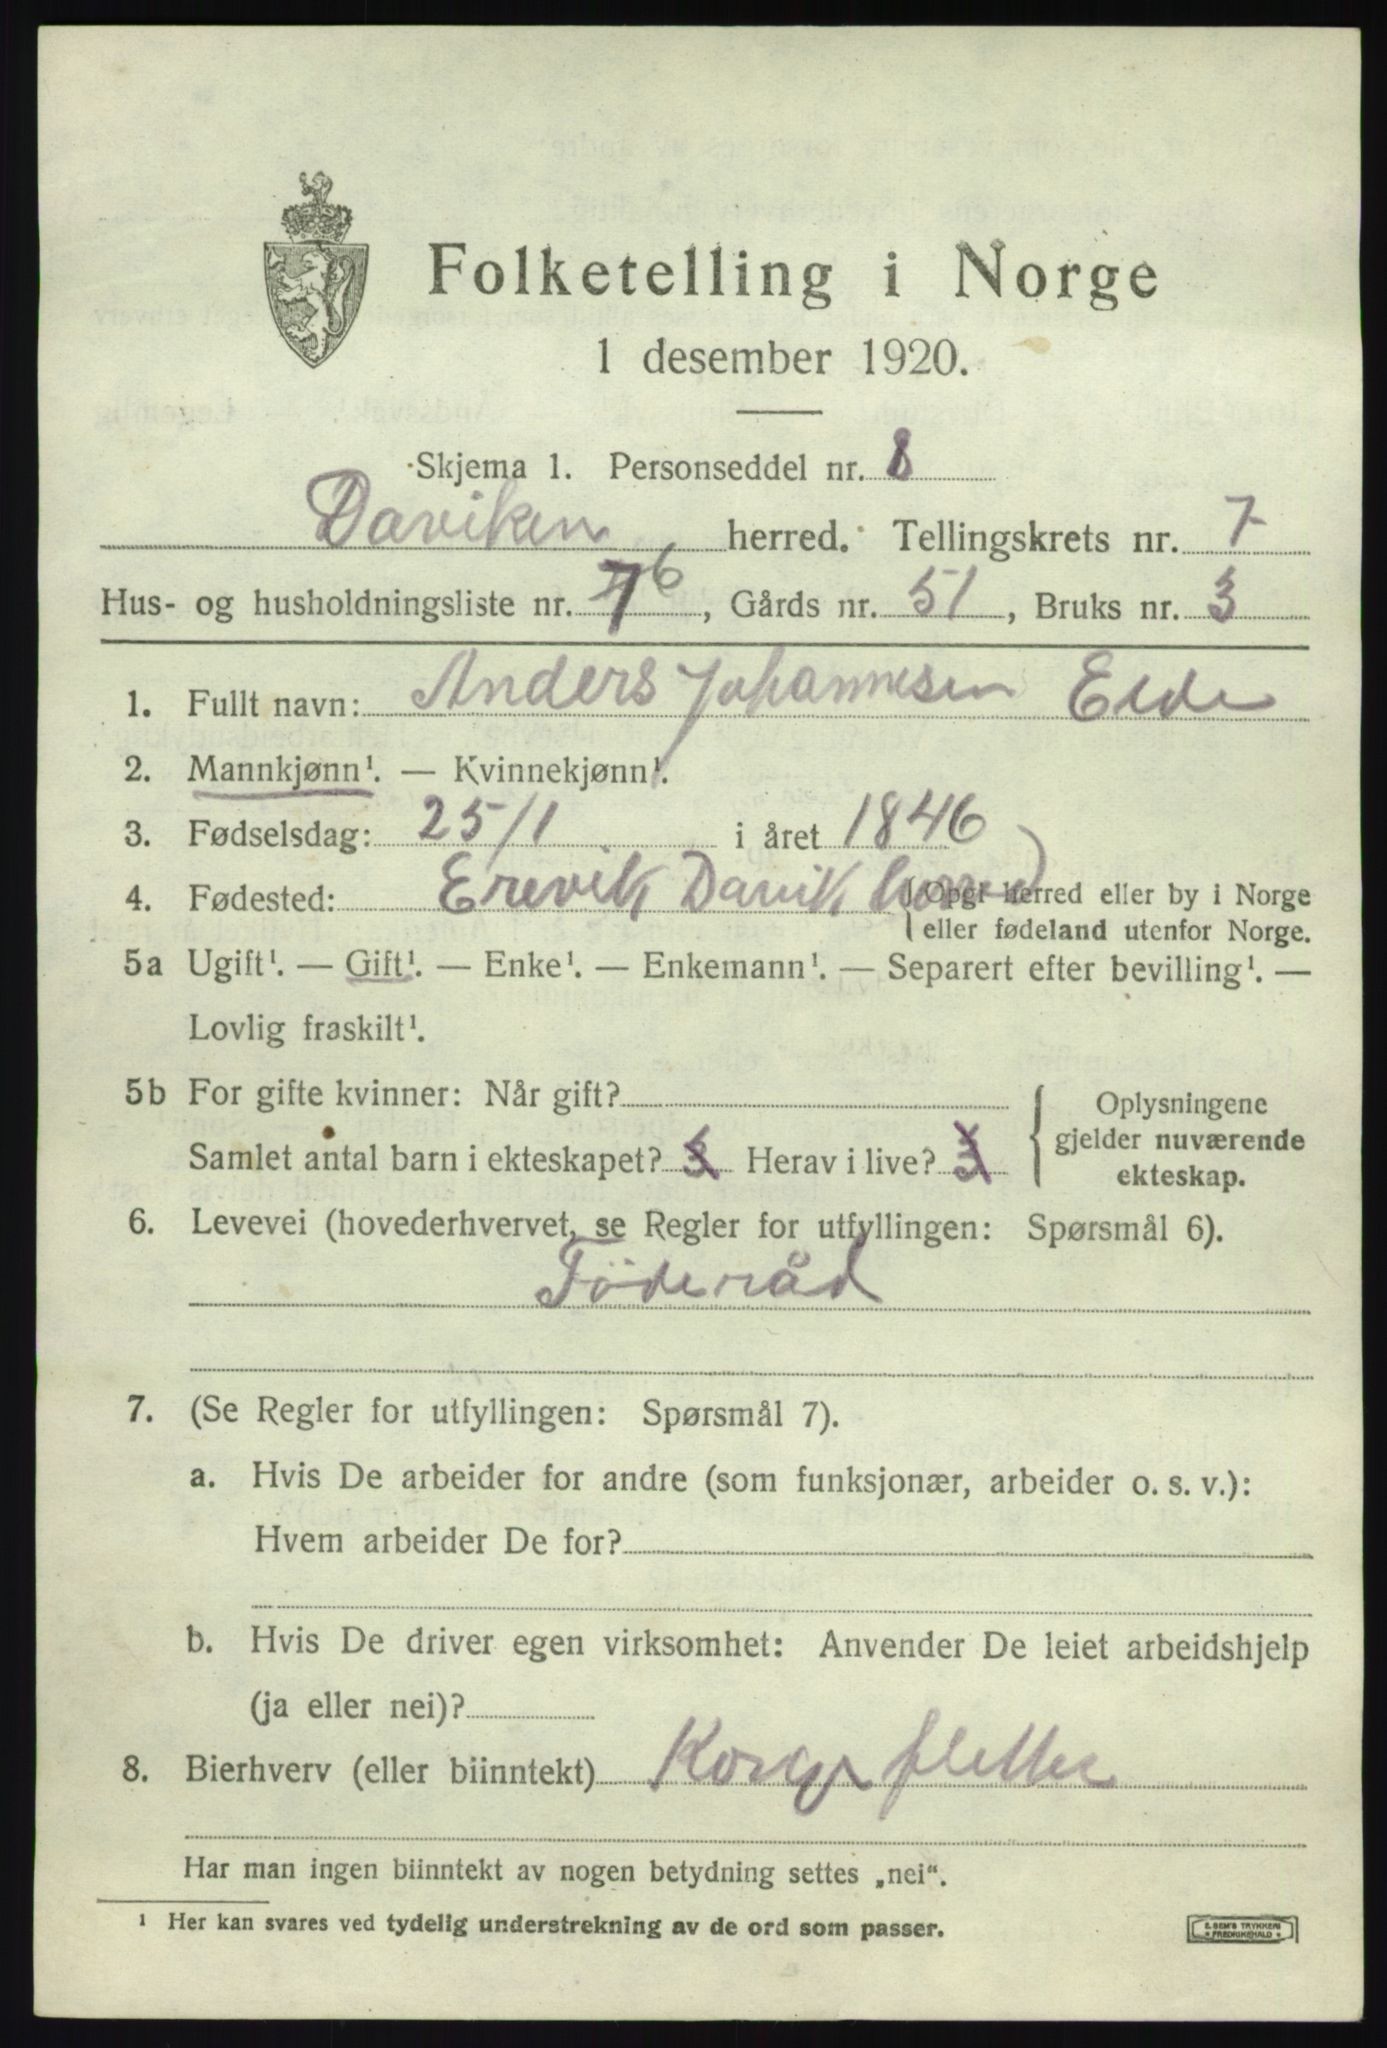 Folketelling i Norge
1 desember 1920.
Skjema 1. Personseddel nr. 8
Daviken herred. Tellingskrets nr. 7
Hus- og husholdningsliste nr. 76, Gårds nr. 51, Bruks nr. 3
1. Fullt navn: Anders Johannesen Eide
2. Mannkjønn¹. — Kvinnekjønn¹.
3. Fødselsdag: 25/1 i året 1846
4. Fødested: Erevik Davik (Opgi herred eller by i Norge
eller fødeland utenfor Norge.
5a Ugift¹. — Gift¹. — Enke¹. — Enkemann¹. — Separert efter bevilling¹. —
Lovlig fraskilt¹.
5b For gifte kvinner: Når gift?
Samlet antal barn i ekteskapet? 3 Herav i live? 3
Oplysningene
gjelder nuværende
ekteskap.
6. Levevei (hovederhvervet, se Regler for utfyllingen: Spørsmål 6).
Föderåd
7. (Se Regler for utfyllingen: Spørsmål 7).
a. Hvis De arbeider for andre (som funksjonær, arbeider o. s. v.):
Hvem arbeider De for?
b. Hvis De driver egen virksomhet: Anvender De leiet arbeidshjelp
(ja eller nei)?
8. Bierhverv (eller biinntekt) Korgfletter
Har man ingen biinntekt av nogen betydning settes „nei“.
¹ Her kan svares ved tydelig understrekning av de ord som passer.
E. SEM'S TRYKKERI
FREDRIKSHALD